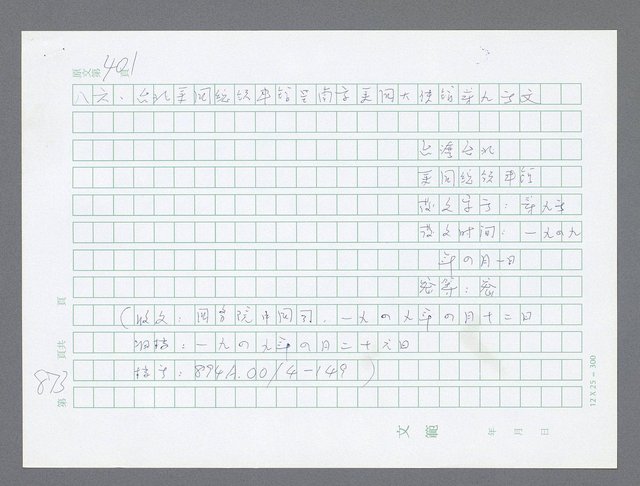 原文第401頁
八六、台北美国總領事館呈南京美国大使館第九号文
台灣台北
美国總領事館
發文字号：第九号
發文时间：一九四九
年四月一日
密等：密
(收文：国务院中国司，一九四九年四月十二日
归档：一九四九年四月二十六日
档号：894A.00/4-149 )
頁
頁共
873
第
12 X 25 = 300
文 範 年 月 日